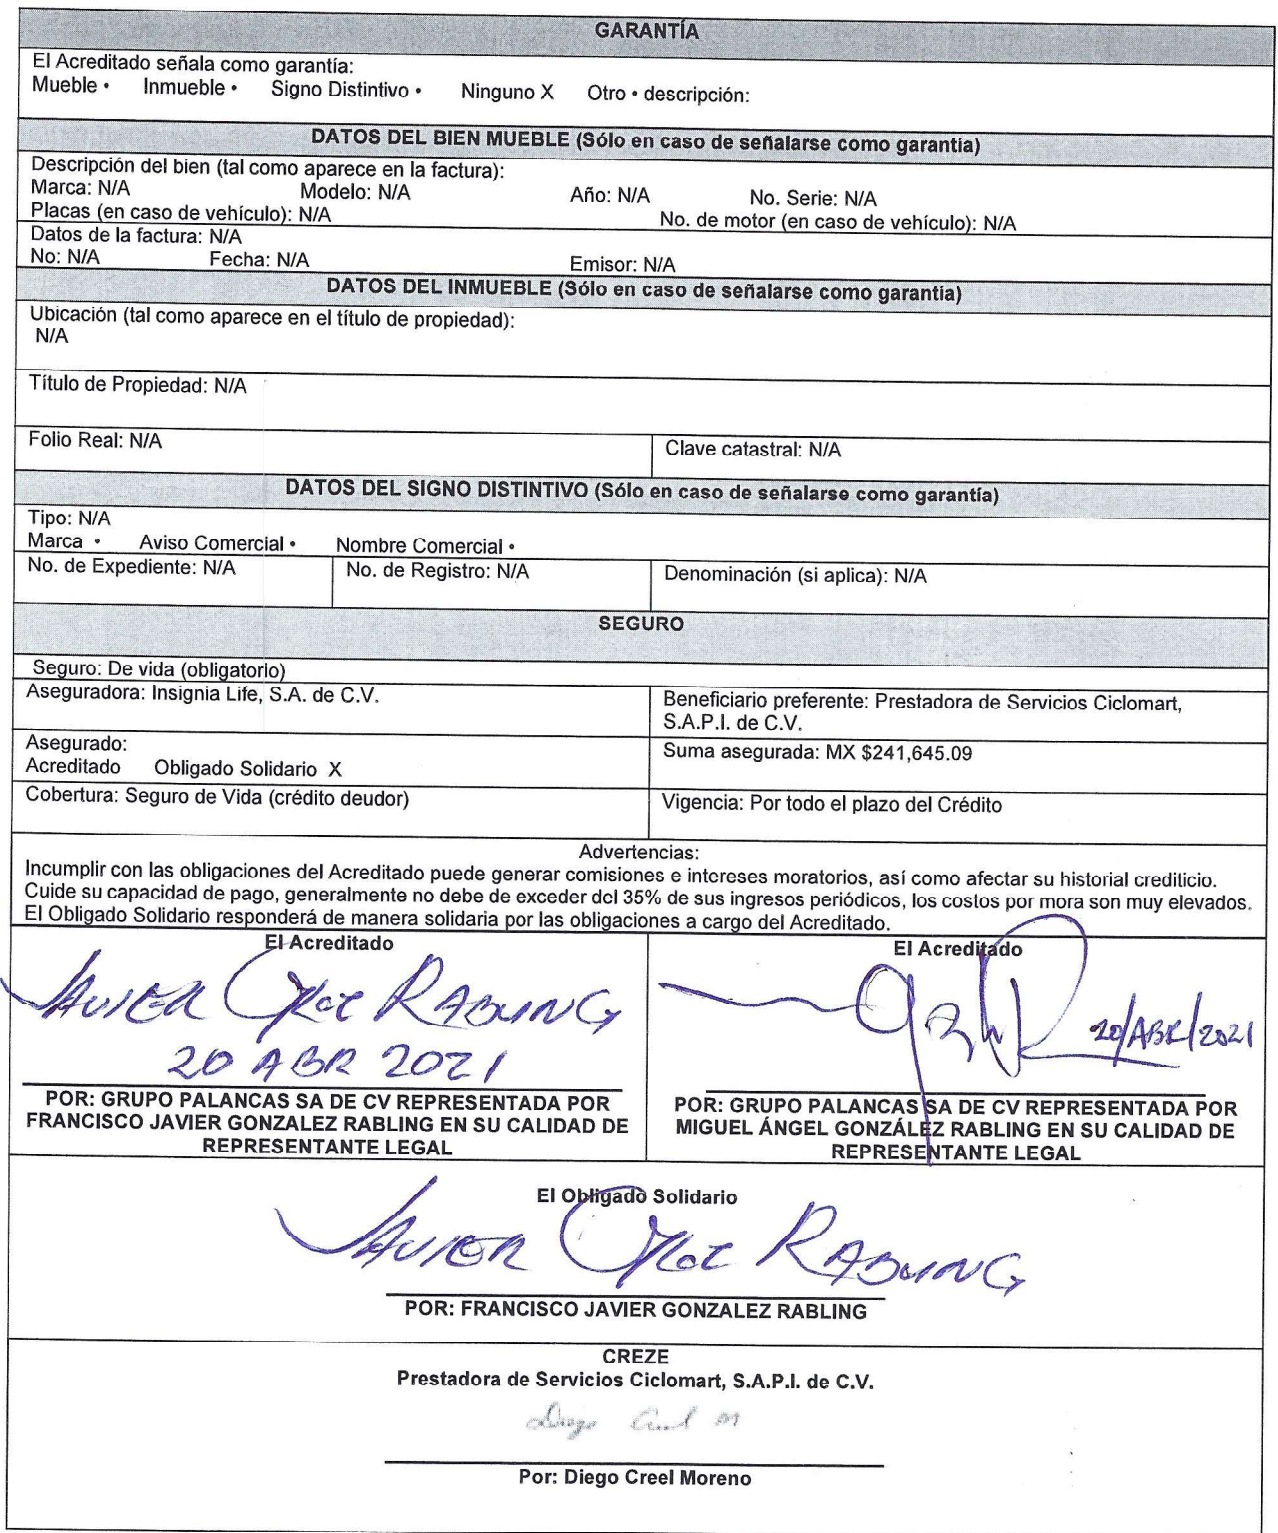 GARANTÍA
El Acreditado señala como garantía:
Mueble • Inmueble • Signo Distintivo • Ninguno X Otro • descripción:
DATOS DEL BIEN MUEBLE (Sólo en caso de señalarse como garantía)
Descripción del bien (tal como aparece en la factura):
Marca: N/A Modelo: N/A Año: N/A No. Serie: N/A
Placas (en caso de vehículo): N/A No. de motor (en caso de vehículo): N/A
Datos de la factura: N/A
No: N/A Fecha: N/A Emisor: N/A
DATOS DEL INMUEBLE (Sólo en caso de señalarse como garantía)
Ubicación (tal como aparece en el título de propiedad):
N/A
Título de Propiedad: N/A
Folio Real: N/A Clave catastral: N/A
DATOS DEL SIGNO DISTINTIVO (Sólo en caso de señalarse como garantía)
Tipo: N/A
Marca • Aviso Comercial • Nombre Comercial •
No. de Expediente: N/A No. de Registro: N/A Denominación (si aplica): N/A
SEGURO
Seguro: De vida (obligatorio)
Aseguradora: Insignia Life, S.A. de C.V.
Beneficiario preferente: Prestadora de Servicios Ciclomart,
S.A.P.I. de C.V.
Asegurado:
Acreditado Obligado Solidario X
Suma asegurada: MX $241,645.09
Cobertura: Seguro de Vida (crédito deudor) Vigencia: Por todo el plazo del Crédito
Advertencias:
Incumplir con las obligaciones del Acreditado puede generar comisiones e intereses moratorios, así como afectar su historial crediticio.
Cuide su capacidad de pago, generalmente no debe de exceder del 35% de sus ingresos periódicos, los costos por mora son muy elevados.
El Obligado Solidario responderá de manera solidaria por las obligaciones a cargo del Acreditado.
El Acreditado
JAVIER RABLING
20 ABR 2021
POR: GRUPO PALANCAS SA DE CV REPRESENTADA POR
FRANCISCO JAVIER GONZALEZ RABLING EN SU CALIDAD DE
REPRESENTANTE LEGAL
El Acreditado
20/ABR/2021
POR: GRUPO PALANCAS SA DE CV REPRESENTADA POR
MIGUEL ÁNGEL GONZÁLEZ RABLING EN SU CALIDAD DE
REPRESENTANTE LEGAL
El Obligado Solidario
JAVIER RABLING
POR: FRANCISCO JAVIER GONZALEZ RABLING
CREZE
Prestadora de Servicios Ciclomart, S.A.P.I. de C.V.
Diego Creel M
Por: Diego Creel Moreno